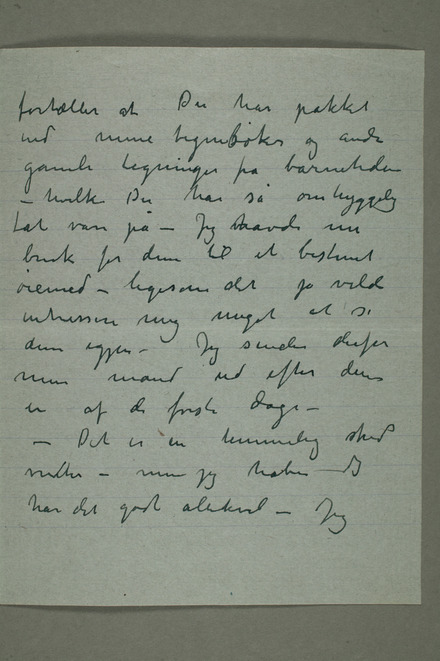 fortæller at Du har pakket
ned mine tegnebøker og andre
gamle tegninger fra barnetiden
– hvilke Du har så omhyggelig
tat vare på – Jeg havde nu
bruk for dem til et bestemt
øiemed – ligesom det jo vilde
interessere mig meget at se
dem igjen – Jeg sender derfor
min mand ud efter dem
en af de første Dage –
– Det er en temmelig
– men jeg håber
har det godt alikevel – Jeg